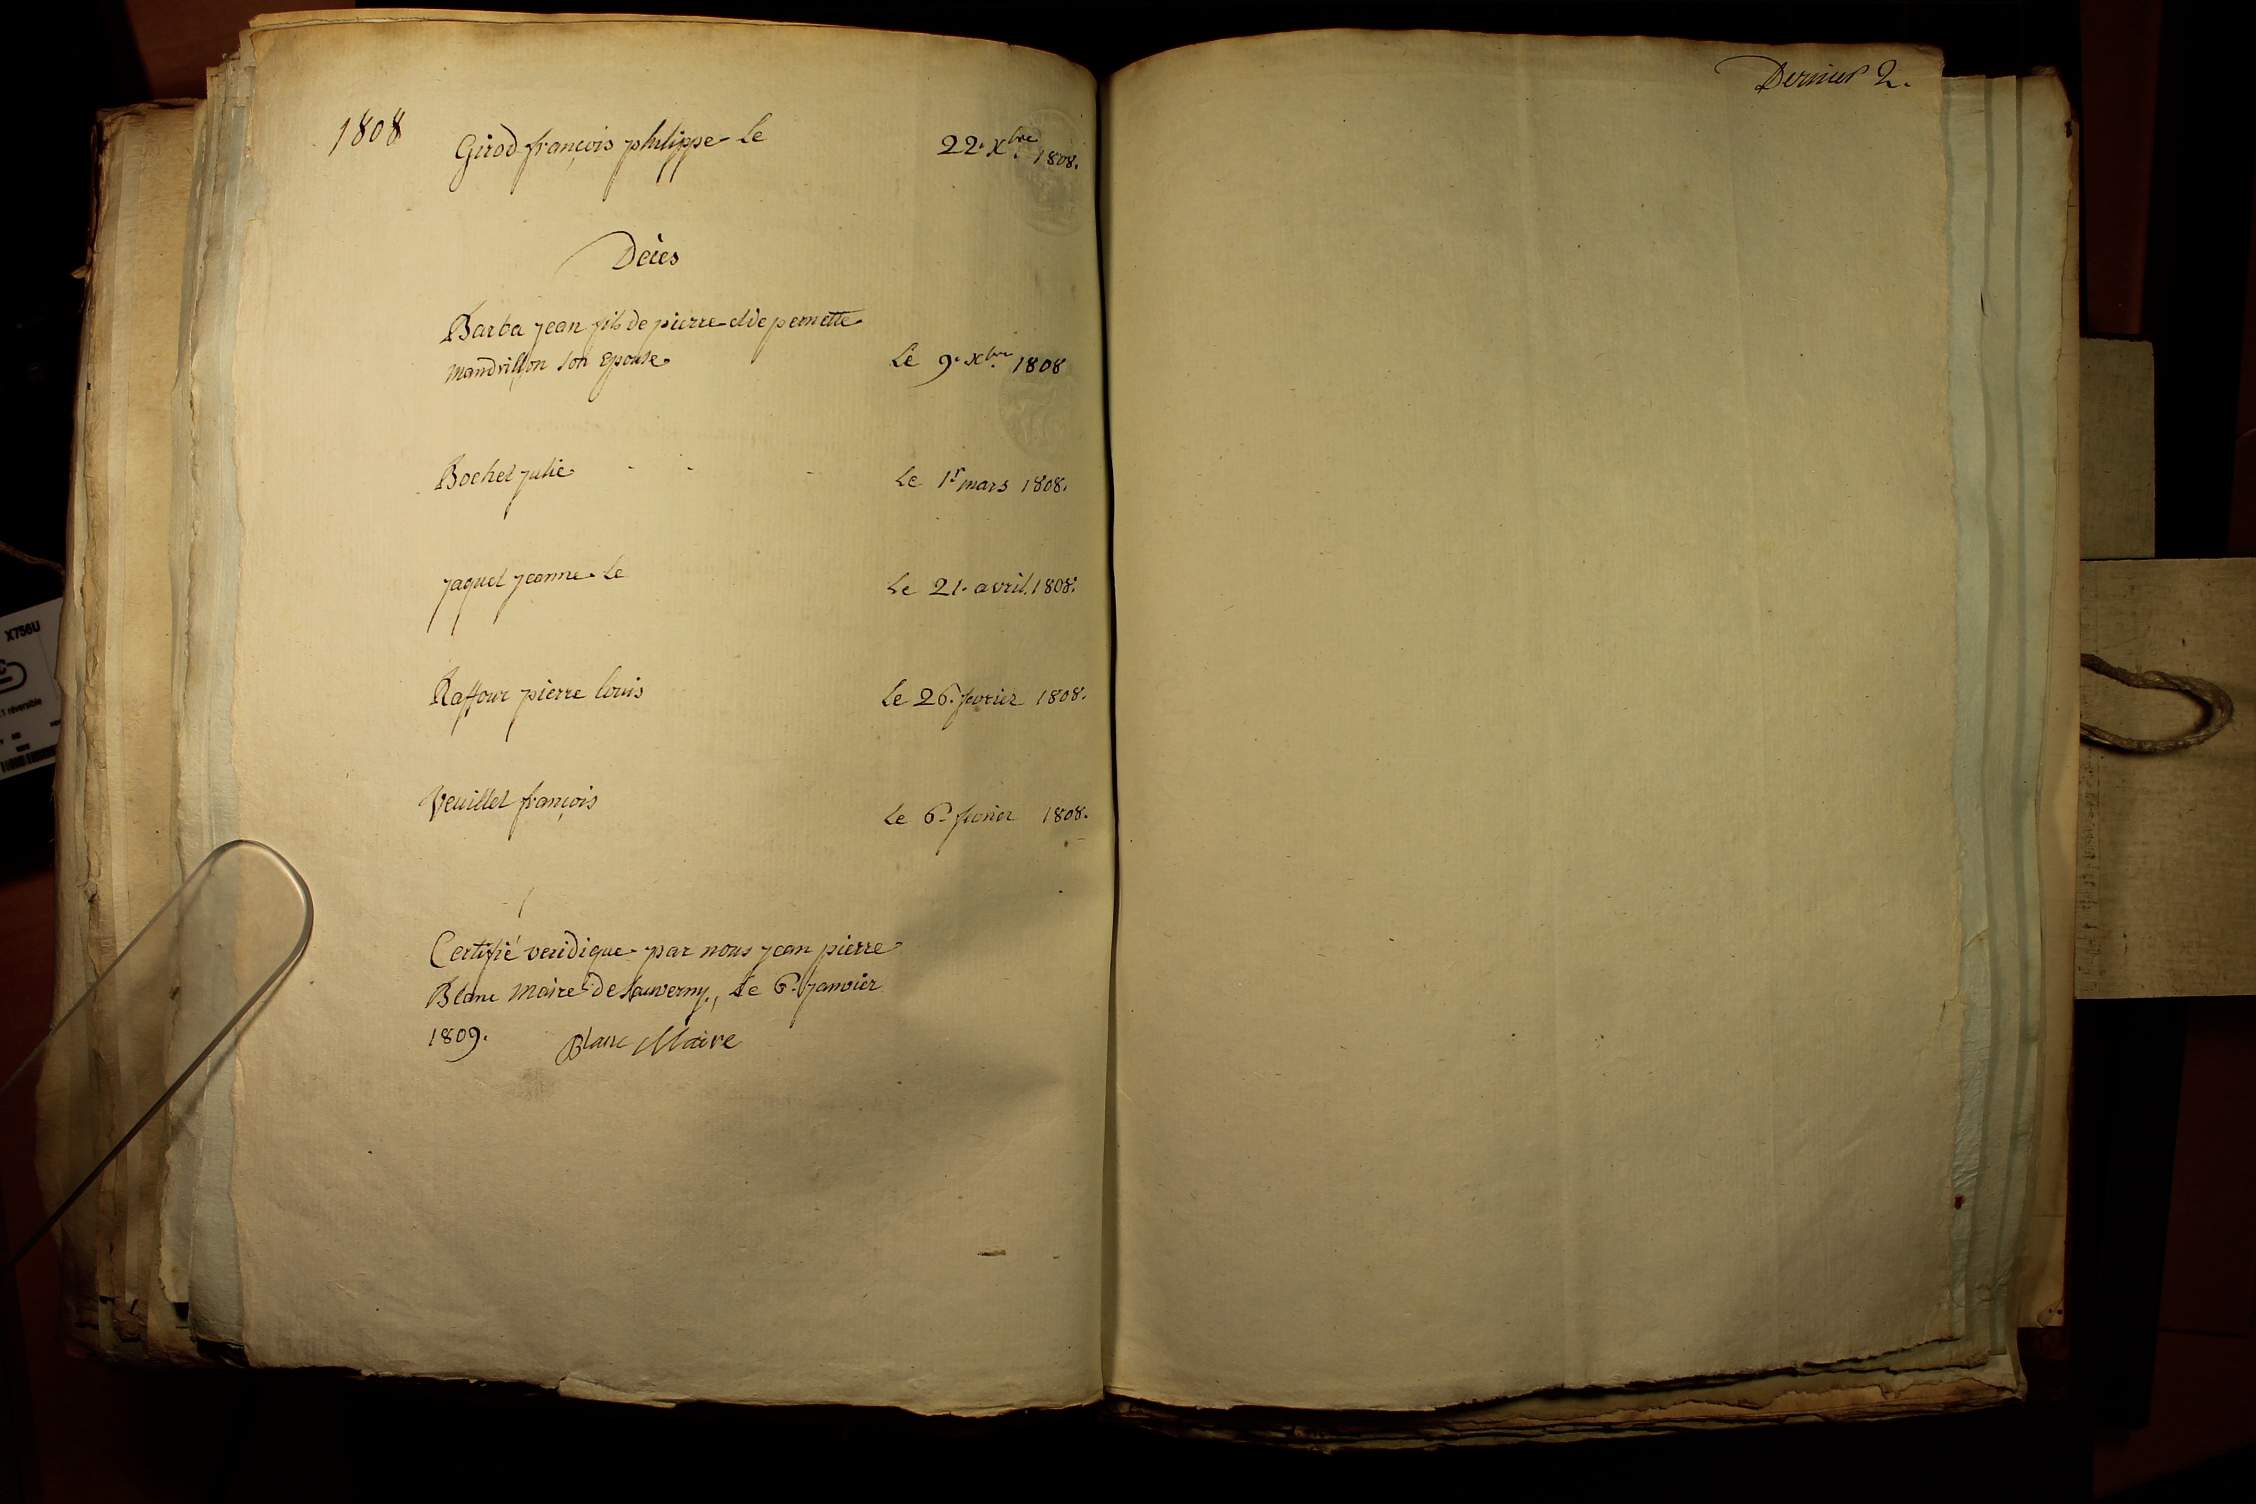 1808
Girod françois philippe le 22. Xbre 1808.
Décès
Barba jean fils de pierre et de pernette
mandrillon son Epouse Le 9. Xbre 1808
Bochet julie - - - Le 1r mars 1808.
jaquet jeanne Le Le 21. avril 1808.
Raffour pierre louis Le 26. fevrier 1808.
Veuillet françois Le 6. fevrier 1808.
Certifié veridique par nous jean pierre
Blanc Maire de Sauverny, Le 6. janvier
1809. Blanc Maire
Dernier 2.
X756U
réversible